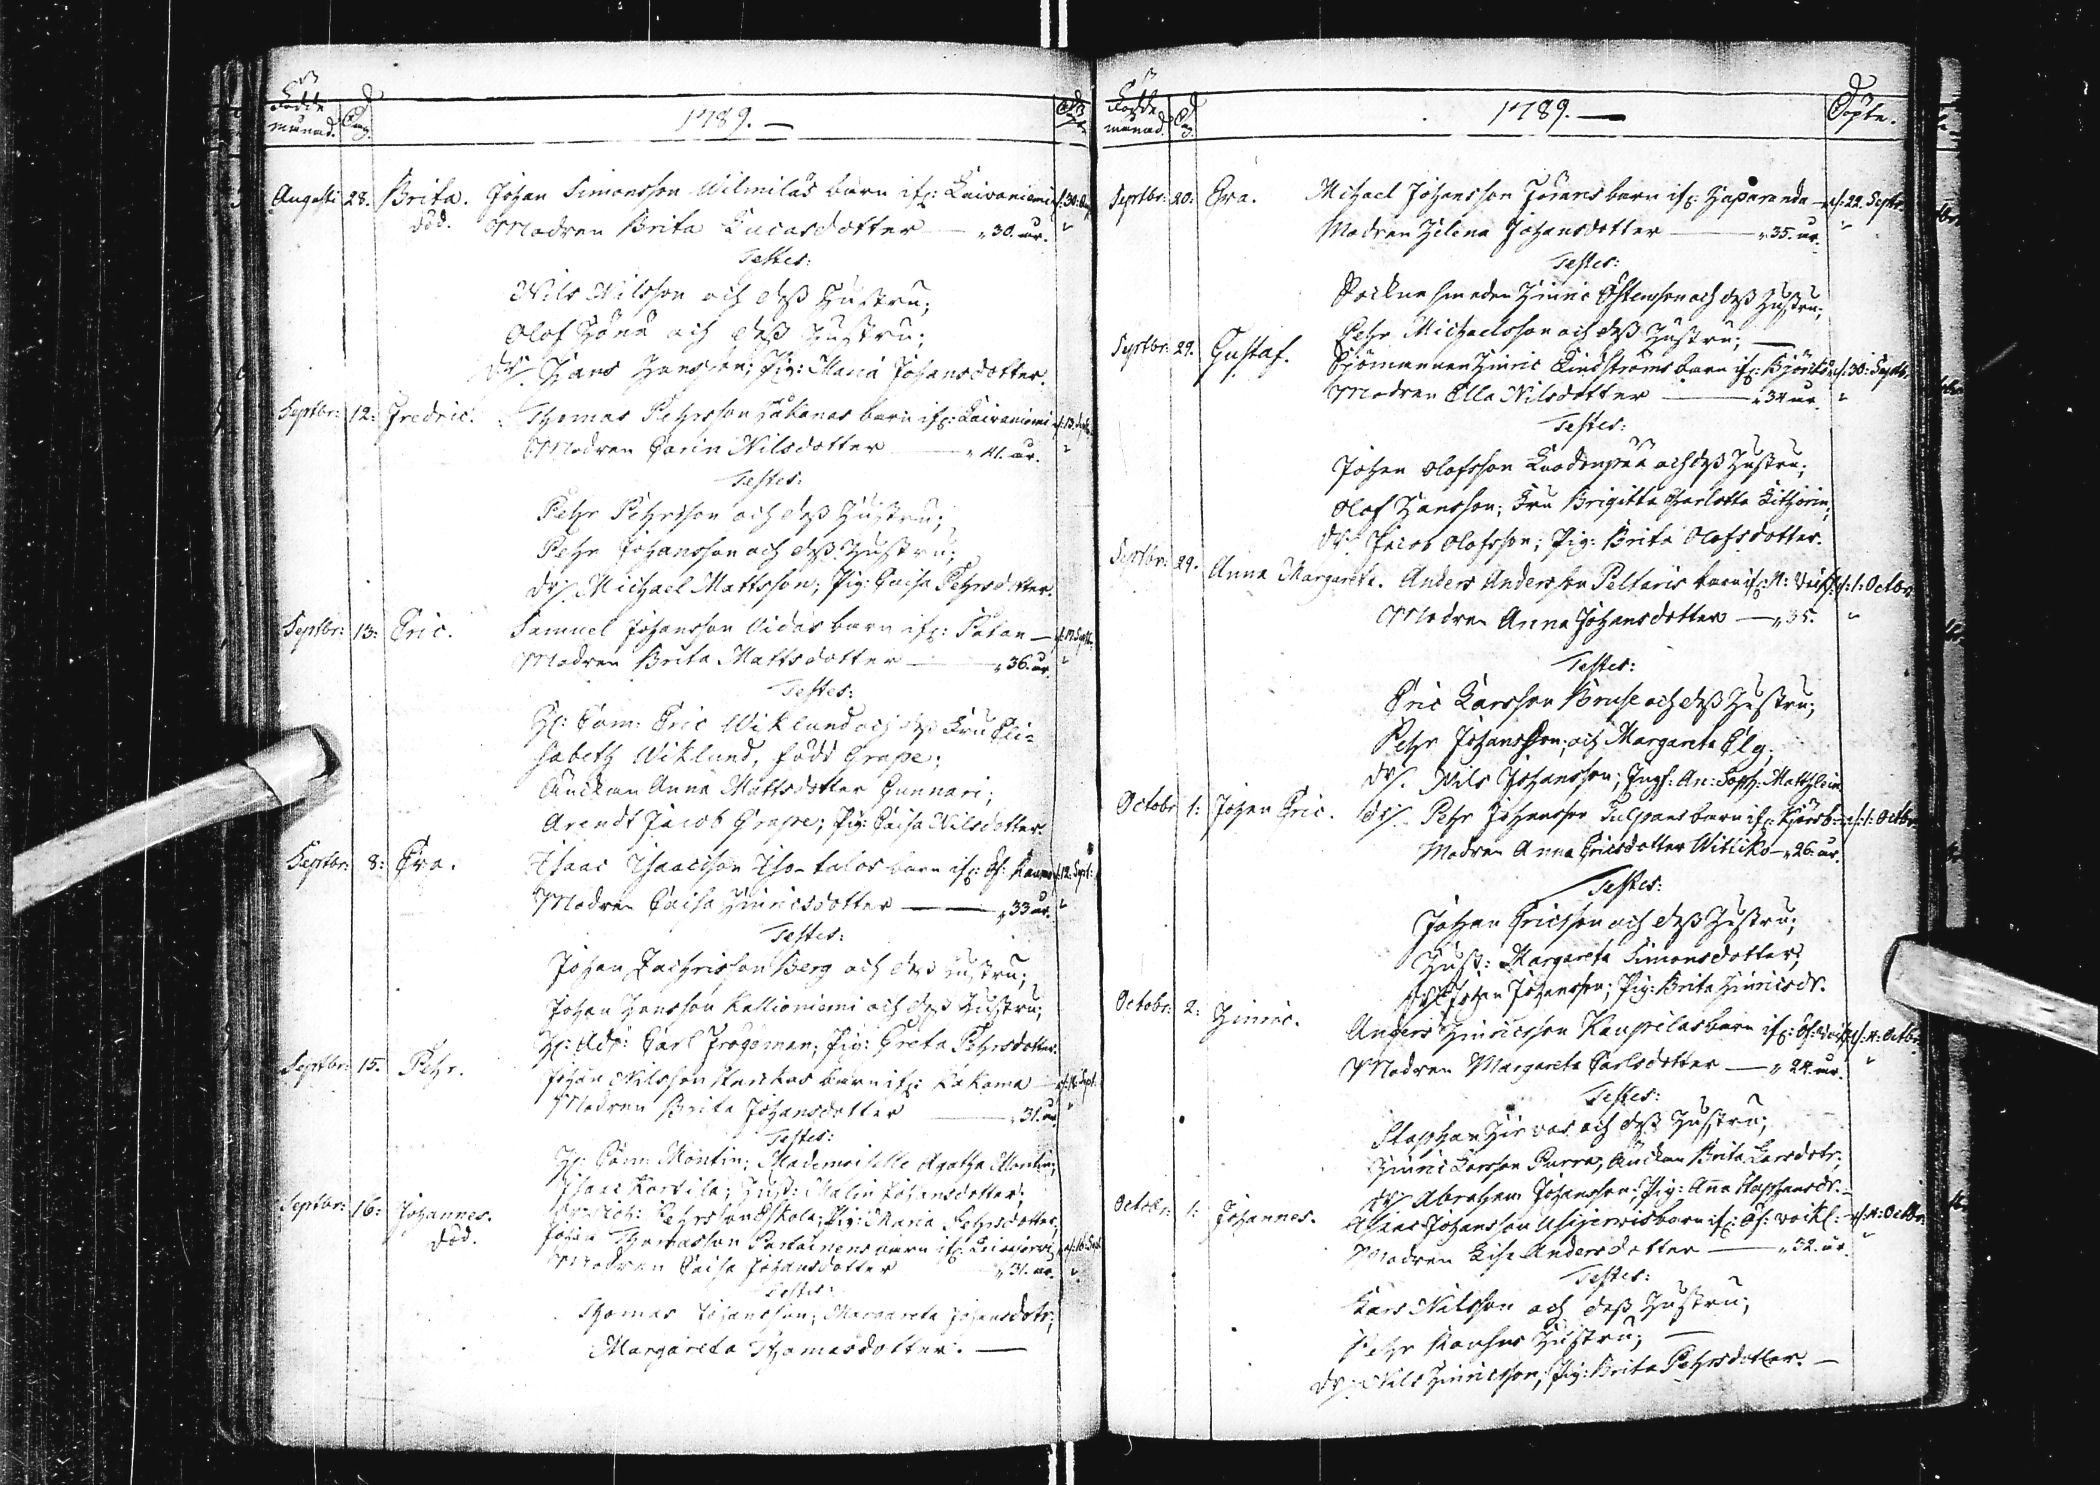 Födde månad. Dag. 1789. — Döpte
Augusti 28. Brita. Johan Simonsson Wilmilas barn if: Kaivaniemi d. 30: Aug
död. Modren Brita Lucasdotter — " 30. år. "
Testes:
Nils Nilsson och dess Hustru;
Olof och dess Hustru;
Dr. Hans Hansson; Pig: Maria Johansdotter.
Septbr: 12: Fredric. Thomas Pehrsson barn if: Kaivaniemi d. 13. Septbr
Modren Carin Nilsdotter — " 41. år. "
Testes:
Pehr Pehrsson och dess Hustru;
Pehr Johansson och dess Hustru;
Dr. Michael Mattsson; Pig: Caisa Pehrsdotter.
Septbr: 13: Eric. Samuel Johansson barn if: — d. 17. Septbr:
Modren Brita Mattsdotter — " 36. år. "
Testes:
H: Eric Wiklund och dess Fru Eli-
sabeth Wiklund, född Grape;
Änckan Anna Mattsdotter Gunnari;
Arendt Jacob Grape; Pig: Caisa Nilsdotter.
Septbr: 8: Eva. Isaac Isaacsson Iso-talos barn if: d. 12. Sept:
Modren Caisa Hinricsdotter — " 33 år. "
Testes:
Johan Zachrisson Berg och dess Hustru;
Johan Hansson Kallioniemi och dess Hustru;
H: Carl Frogoman; Pig: Greta Pehrsdotter.
Septbr: 15. Pehr. Johan Nilsson barn if: Kakama d. Sept:
Modren Brita Johansdotter — " 31. år "
Testes:
H: Montin; Mademoiselle Agatha Montin;
Isaac Kortila; Hust: Malin Johansdotter;
Pehrsson Pig: Maria Pehrsdotter;
Septbr: 16: Johannes. Johan Thomasson barn if: d. 16: Sept
död. Modren Caisa Johansdotter " 31. år. "
Testes:
Thomas Johansson; Margareta Johansdotr;
Margareta Thomasdotter. —
Födde månad. Dag. 1789. — Döpte.
Septbr: 20: Eva. Michael Johansson barn if: Haparanda — d. 22. Septbr.
Modren Helena Johansdotter — " 35. år. "
Testes:
Sockne smeden Hinric och dess Hustru;
Pehr Michaelsson och dess Hustru; —
Septbr: 29. Gustaf. Sjömannen Hinric Lindströms barn if: Björkön d. 30: Septbr.
Modren Ella Nilsdotter — " 34 år. "
Testes:
Johan Olofsson och dess Hustru;
Olof Hansson; Fru Brigitta Charlotta
Dr. Jacob Olofsson; Pig: Brita Olofsdotter.
Septbr: 29. Anna Margareta. Anders Andersson Peltaris barn if: N: d. 1: Octbr:
Modren Anna Johansdotter — " 35. "
Testes:
Eric Larsson Kruse och dess Hustru;
Pehr Johansson; och Margareta Elg;
Dr. Nils Johansson; Jungf: An: Soph:
Octobr 1: Johan Eric. Dr. Pehr Johansson barn if: d. 1: Octbr
Modren Anna Ericsdotter Witicko — " 26. år.
Testes:
Johan Ericsson och dess Hustru;
Hust: Margareta Simonsdotter;
Dr. Johan Johansson; Pig: Brita Hinricsdr.
Octobr: 2: Hinric. Anders Hinricsson Kaupilas barn if: d. 4: Octbr:
Modren Margareta Carlsdotter — " 24. år. "
Testes:
Staphan Hirvas och dess Hustru;
Hinric Larsson Purra; Änckan Brita Larsdotr;
Dr. Abraham Johansson; Pig: Anna Staphansdr. —
Octobr: 1: Johannes. Johansson barn if: d. 4: Octbr:
Modren Lisa Andersdotter — " 32. år. "
Testes:
Lars Nilsson och dess Hustru;
Pehr Hustru; —
Dr: Nils Hinricsson; Pig: Brita Pehrsdotter. —